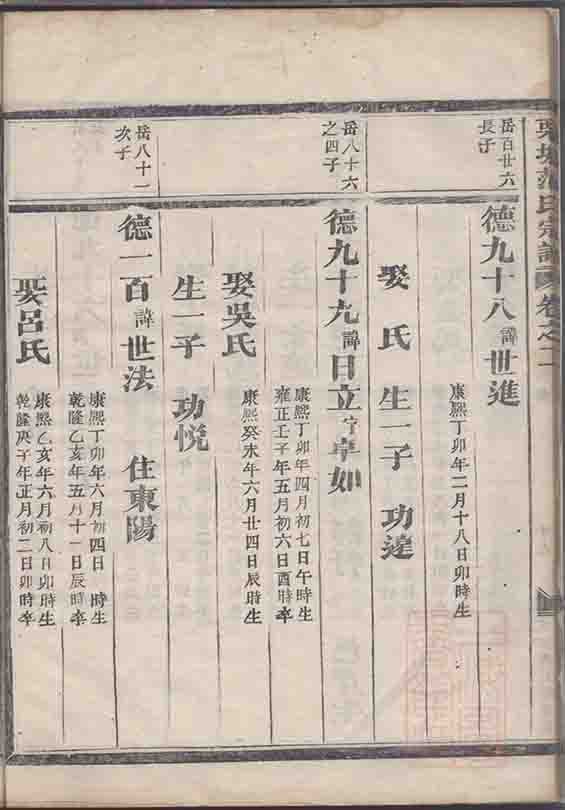 氏宗譜 卷之二
岳百廿六
長子
德九十八 諱世進
康熙丁卯年二月十八日卯時生
娶 氏 生一子 功達
岳八十六
之四子
德九十九 諱日立 字卓如
康熙丁卯年四月初七日午時生
雍正壬子年五月初六日酉時卒
娶吳氏
康熙癸未年六月廿四日辰時生
生一子 功悅
岳八十一
次子
德一百 諱世法 住東陽
康熙丁卯年六月初四日 時生
乾隆乙亥年五月十一日辰時卒
娶呂氏
康熙乙亥年六月初八日卯時生
乾隆庚子年正月初二日卯時卒